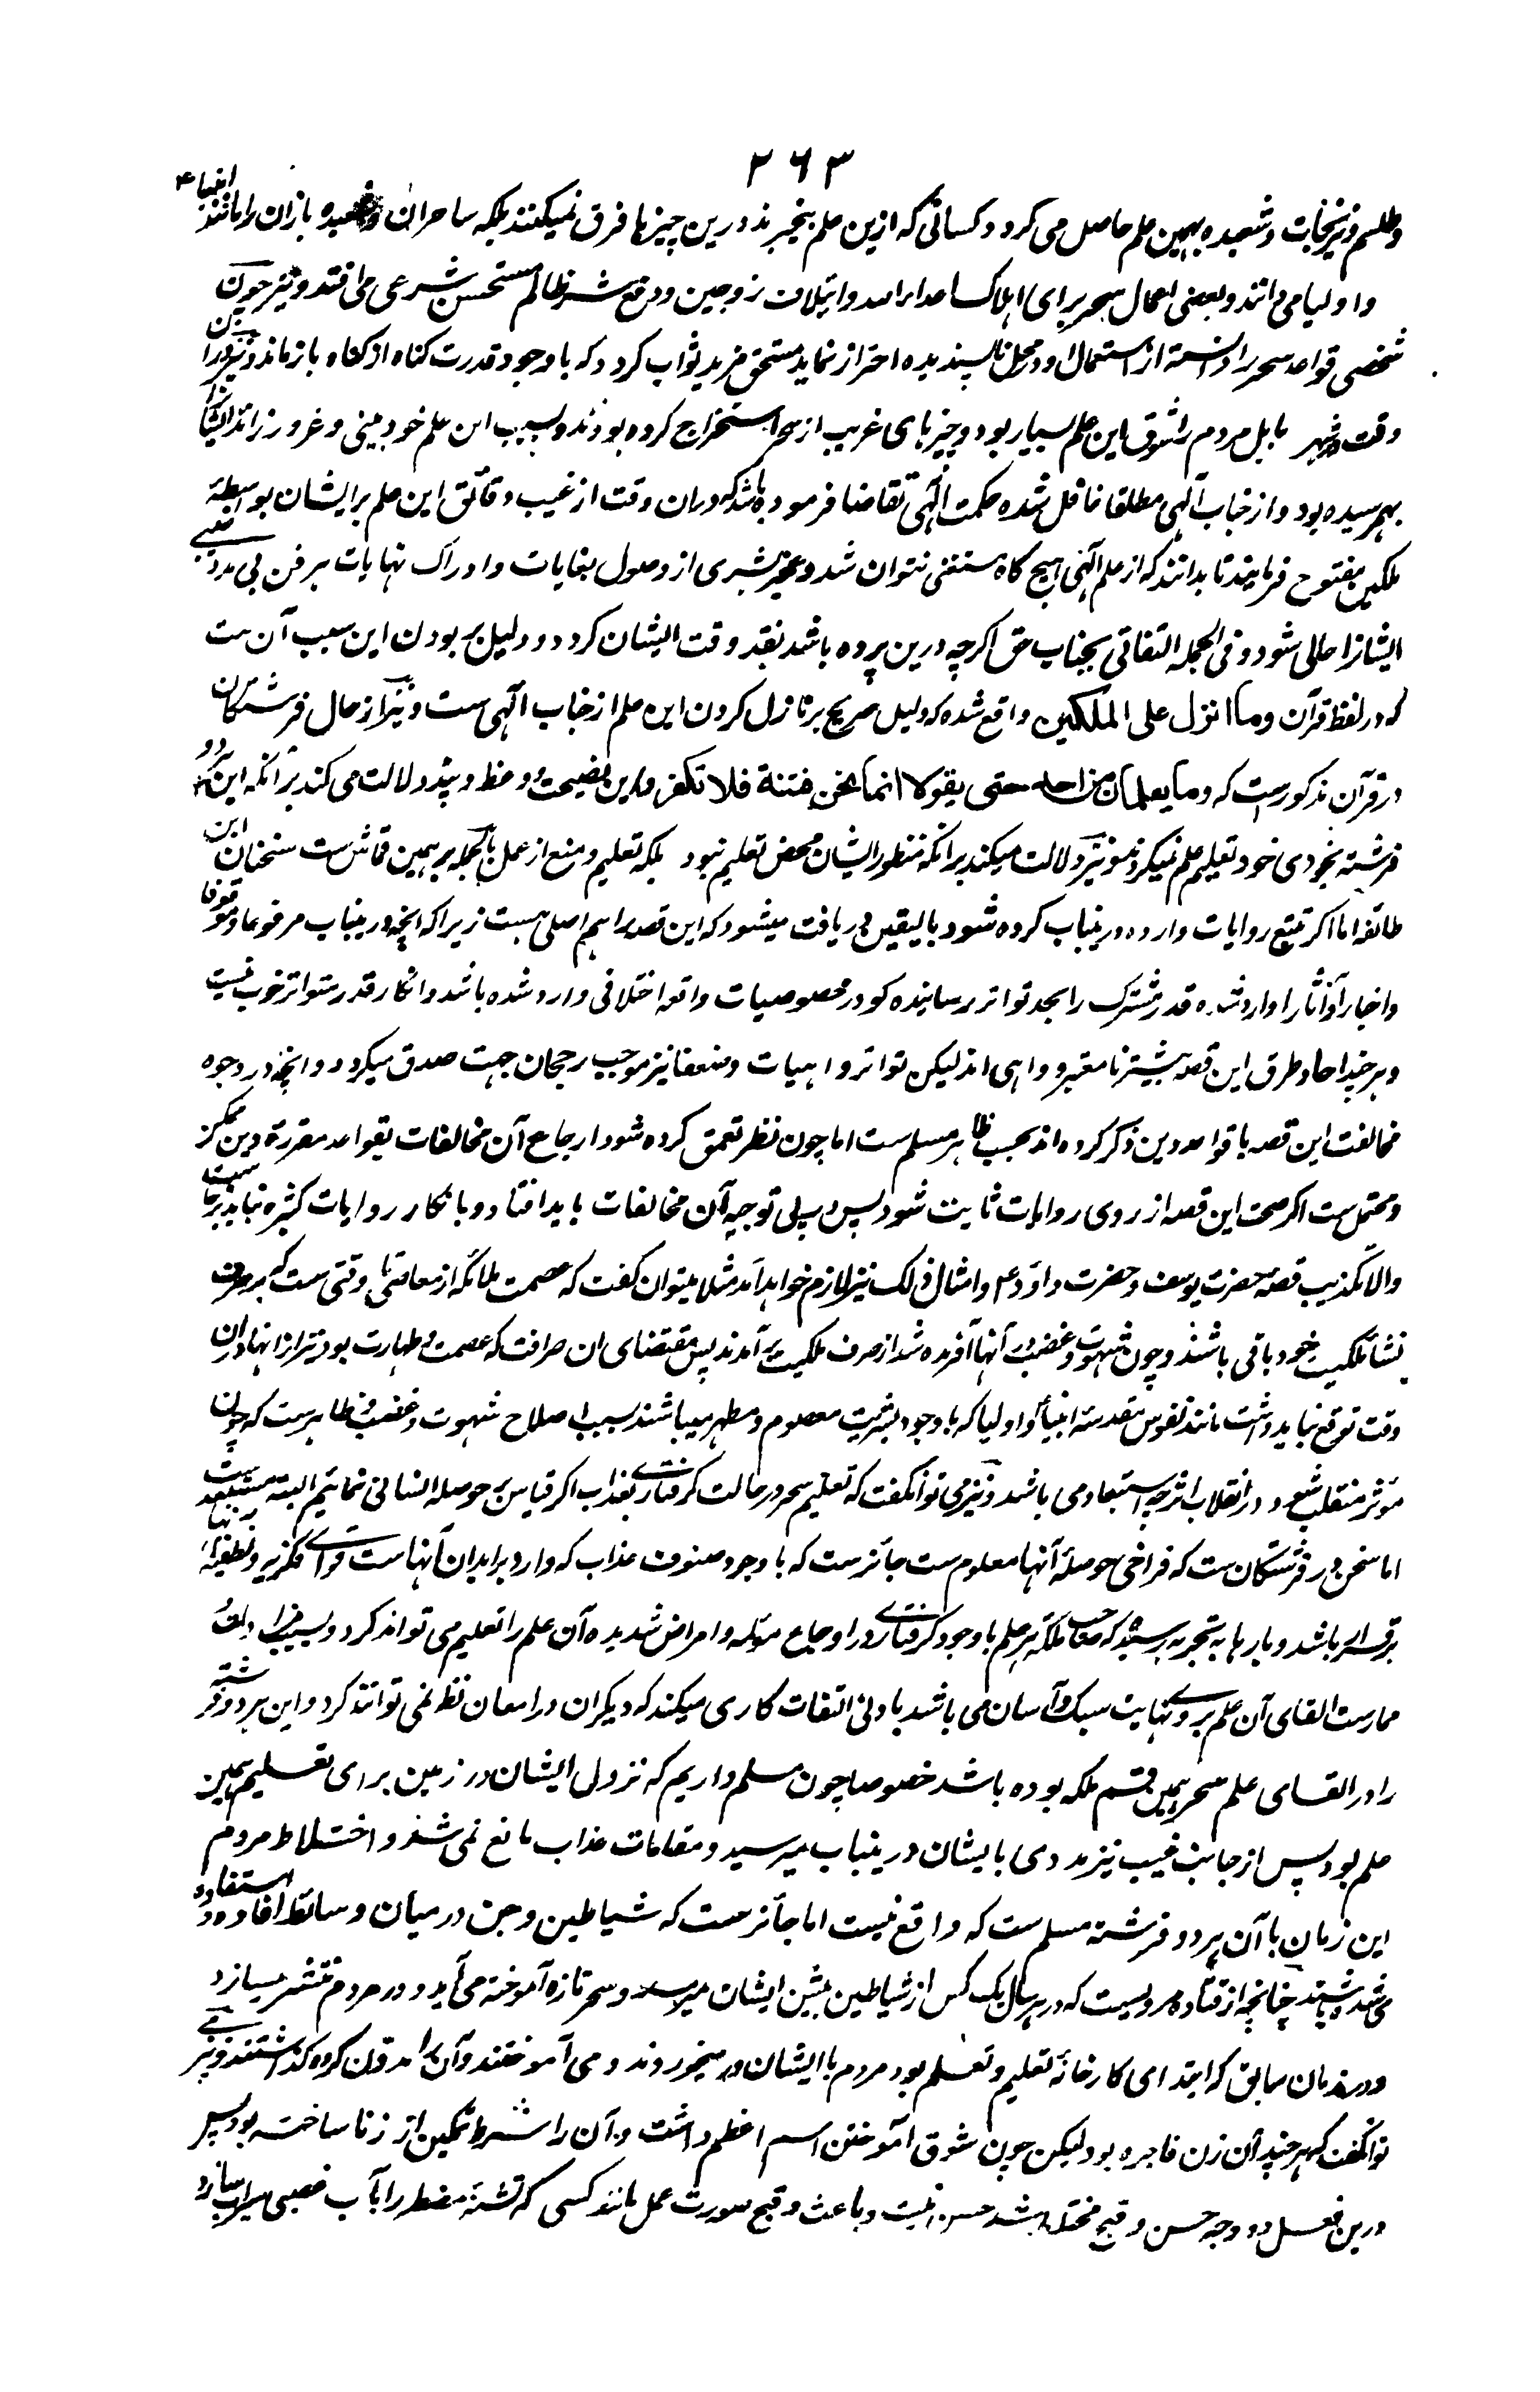 ۲۶۳
وطلسم و نیرنجات و شعبده بهمین علم حاصل می گردد و کسانی که ازین علم بیخبرند درین چیزها فرق نمیکنند بلکه ساحران و شعبده بازان را مانند انبیاء
و اولیا می دانند و بعضی اعمال سحر برای اهلاک اعداء الله و ایتلاف زوجین و دفع شر ظالم مستحسن شرعی می افتد و نیز چون
شخصی قواعد سحر را دانسته از استعمال او در محل ناپسندیده احتراز نماید مستحق مزید ثواب گردد که با وجود قدرت گناه از گناه باز ماند و نیز در آن
وقت در شهر بابل مردم را شوق این علم بسیار بود و چیزهای غریب از سحر استخراج کرده بودند و بسبب این علم خودبینی و غرور زائد ایشان را
بهم رسیده بود و از جناب آلهی مطلقا غافل شده حکمت الهی تقاضا فرموده باشد که دران وقت از غیب دقائق این علم بر ایشان بواسطهٔ
ملکین مفتوح فرمایند تا بدانند که از علم آلهی هیچ گاه مستغنی نتوان شد و عجز بشری از وصول بغایات و ادراک نهایات هر فن بی مدد غیبی
ایشانرا حالی شود و فی الجمله التفاتی بجناب حق اگرچه درین پرده باشد نقد وقت ایشان گردد و دلیل بر بودن این سبب آن ست
که در لفظ قرآن وما انزل علی الملکین واقع شده که دلیل صریح بر نازل کردن این علم از جناب آلهی ست و نیز از حال فرشتگان
در قرآن مذکور است که وما یعلمان من احد حتی یقولا انما نحن فتنة فلا تکفر و این نصیحت و وعظ و پند دلالت می کند بر آنکه این هر دو
فرشته بخودی خود تعلیم علم نمیکردند و نیز دلالت میکند بر آنکه منظور ایشان محض تعلیم نبود بلکه تعلیم و منع از عمل بالجمله بر همین قماش ست سخنان این
طائفه اما اگر تتبع روایات وارده درینباب کرده شود بالیقین دریافت میشود که این قصه را هم اصلی هست زیرا که آنچه درینباب مرفوعا و موقوفا
و اخبارا و آثارا وارد شده قدر مشترک را بحد تواتر رسانیده گو در خصوصیات واقعه اختلافی وارد شده باشد و انکار قدر متواتر خوب نیست
و هر چند احاد طرق این قصه بیشتر نامعتبر و واهی اند لیکن تواتر واهیات و ضعفا نیز موجب رجحان جهت صدق میگردد و آنچه در وجوه
مخالفت این قصه با قواعد دین ذکر کرده اند بحسب ظاهر مسلم ست اما چون نظر تعمق کرده شود ارجاع آن مخالفات بقواعد مقررهٔ دین ممکن
و محتمل ست اگر صحت این قصه از روی روایات ثابت شود پس در پی توجیه آن مخالفات باید افتاد و بانکار روایات کثیره نباید برخاست
والا تکذیب قصهٔ حضرت یوسف و حضرت داؤد ع و امثال ذلک نیز لازم خواهد آمد مثلا میتوان گفت که عصمت ملائکه از معاصی تا وقتی ست که بر صرافت
نشأ ملکیت خود باقی باشند و چون شهوت و غضب در آنها آفریده شد از صرف ملکیت بر آمدند پس مقتضای ان صرافت که عصمت و طهارت بود نیز از انها دران
وقت توقع نباید داشت مانند نفوس مقدسهٔ انبیا و اولیا که با وجود بشریت معصوم و مطهر میباشند بسبب اصلاح شهوت و غضب و ظاهر ست که چون
مؤثر منقلب شود در انقلاب اثر چه استبعاد می باشد و نیز می توان گفت که تعلیم سحر در حالت گرفتاری بعذاب اگر قیاس بر حوصلهٔ انسانی نمائیم البته مستبعد ست
اما سخن در فرشتگان ست که فراخی حوصلهٔ آنها معلوم ست جائز ست که با وجود صنوف عذاب که وارد بر ابدان آنهاست قوای فکریه و نطقیهٔ آنها
برقرار باشد و بارها به تجربه رسیده که صاحب ملکهٔ هر علم با وجود گرفتاری در اوجاع مؤلمه و امراض شدیده آن علم را تعلیم می تواند کرد و بسبب مزاولت
ممارست القای آن علم بروی نهایت سبک و آسان می باشد بادنی التفات کاری میکند که دیگران در امعان نظر نمی توانند کرد و این هر دو فرشته
را در القای علم سحر همین قسم ملکه بوده باشد خصوصا چون مسلم داریم که نزول ایشان در زمین برای تعلیم همین
علم بود پس از جانب غیب نیز مددی بایشان درینباب میرسید و مقامات عذاب مانع نمی شد و اختلاط مردم
این زمان با آن هر دو فرشته مسلم ست که واقع نیست اما جائز ست که شیاطین و جن درمیان وسائط افاده و استفاده
می شده باشند چنانچه از قتاده مرویست که در هر سال یک کس از شیاطین پیش ایشان میرسد و سحر تازه آموخته می آید و در مردم منتشر میسازد
و در زمان سابق که ابتدای کارخانهٔ تعلیم و تعلم بود مردم با ایشان در میخوردند و می آموختند و آن را مدون کرده گذاشتند و نیز می
توان گفت که هر چند آن زن فاجره بود لیکن چون شوق آموختن اسم اعظم داشت و آن را شرط تمکین از زنا ساخته بود پس
درین فعل دو وجه حسن و قبح مختلط شد حسن نیت و باعث و قبح صورت عمل مانند کسی که تشنهٔ مضطر را بآب غصبی سیراب سازد